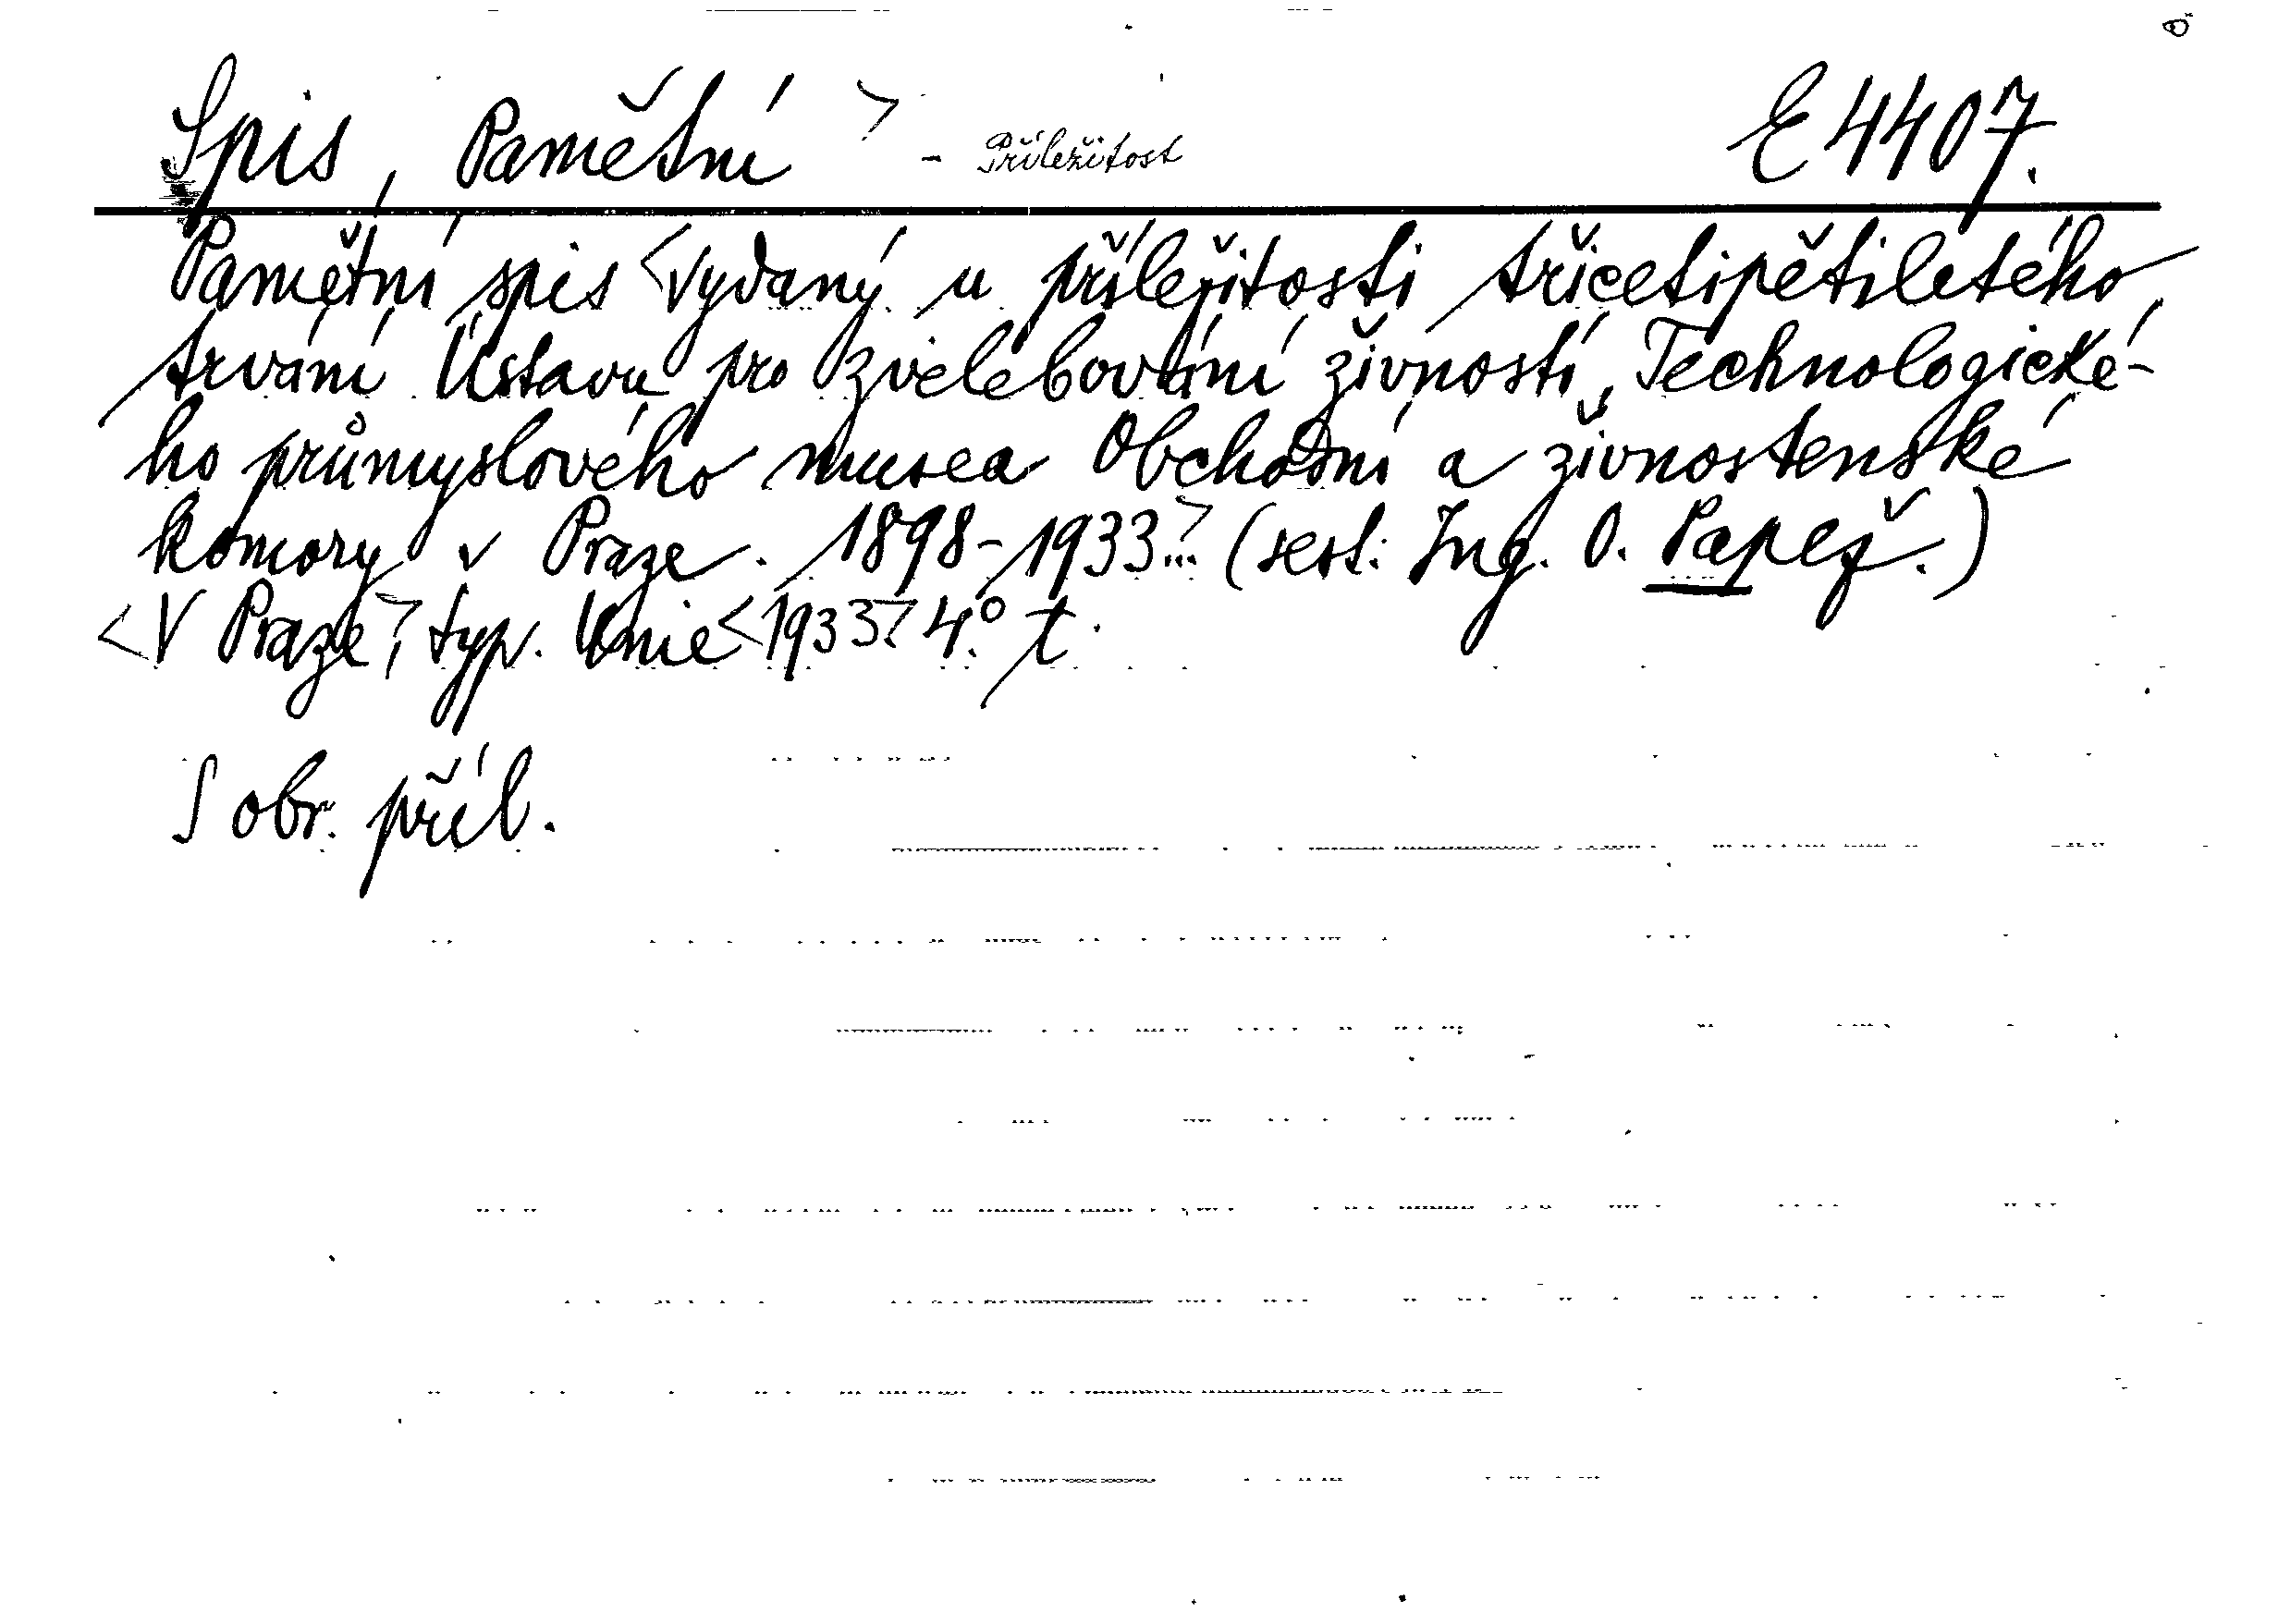 Spis, Pamětní > - Příležitost E 4407.
Pamětní spis <vydaný u příležitosti třicetipětiletého
trvání Ústavu pro zvelebování živností, Technologické-
ho průmyslového musea Obchodní a živnostenské
komory v Praze. 1898-1933...> (sest. Ing. O. Papež.)
<V Praze>, typ. Unie <1933>. 4° t.
S obr. příl.